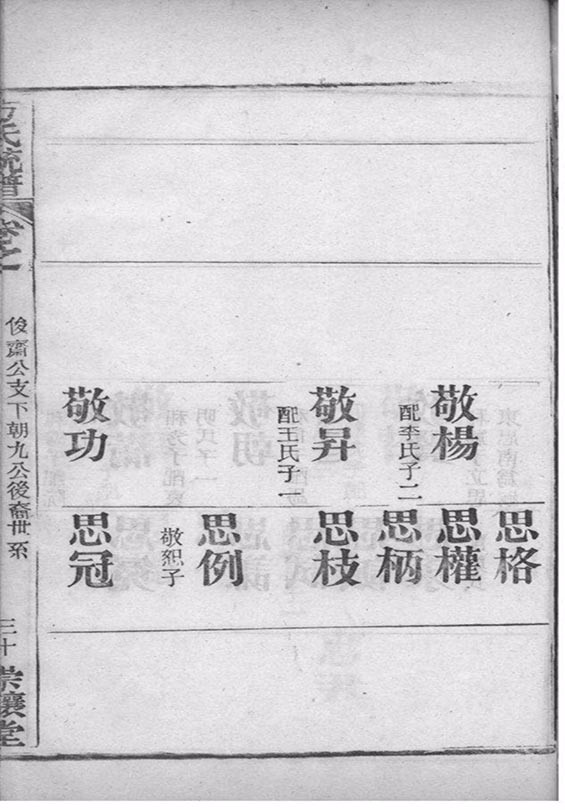 敬楊
配李氏子二
敬昇
配王氏子一
敬功
思格
思權
思柄
思枝
思例
敬恕子
思冠
方氏統譜
卷之
俊齋公支下朝九公後裔世系
三十
崇讓堂